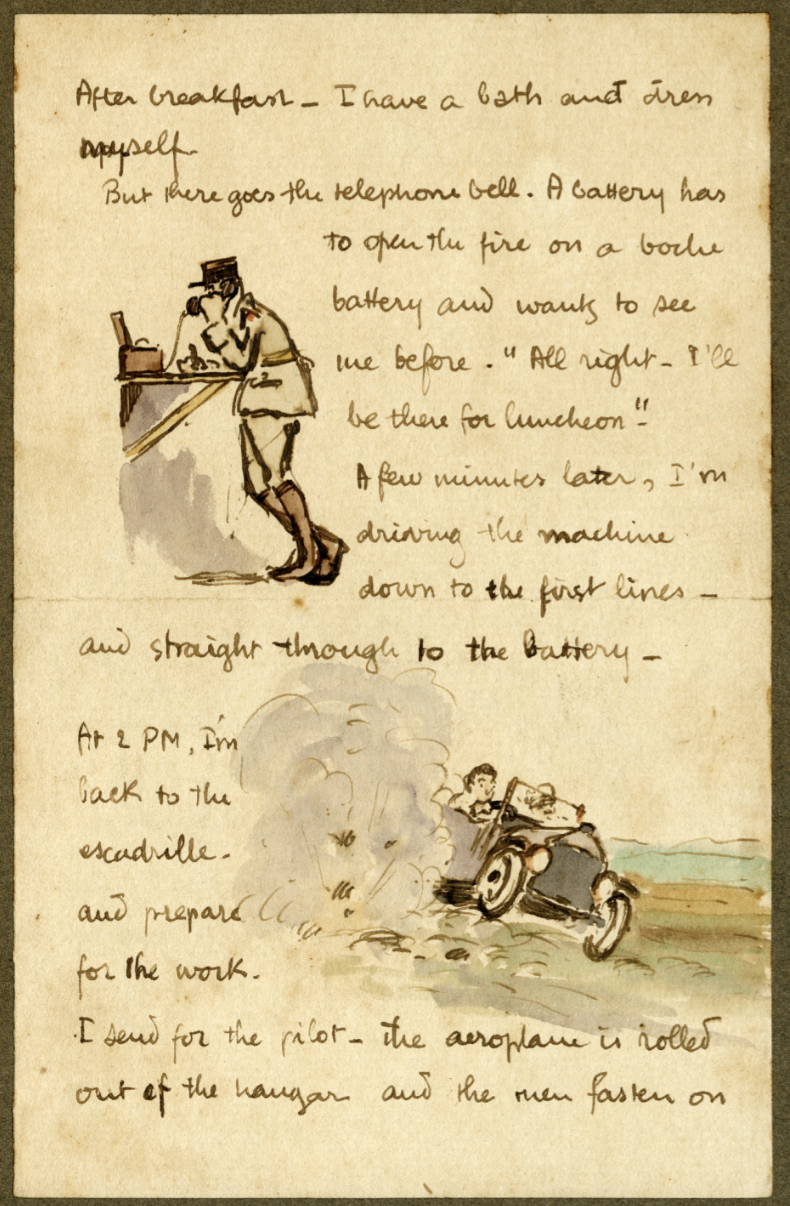 After breakfast – I have a bath and dress
myself.
But there goes the telephone bell. A battery has
to open the fire on a boche
battery and wants to see
me before. " All right – I'll
be there for luncheon "–
A few minutes later, I'm
driving the machine
down to the first lines –
and straight through to the battery –
At 2 PM, I'm
back to the
escadrille –
and prepare
for the work.
I send for the pilot – the aeroplane is rolled
out of the hangar and the men fasten on